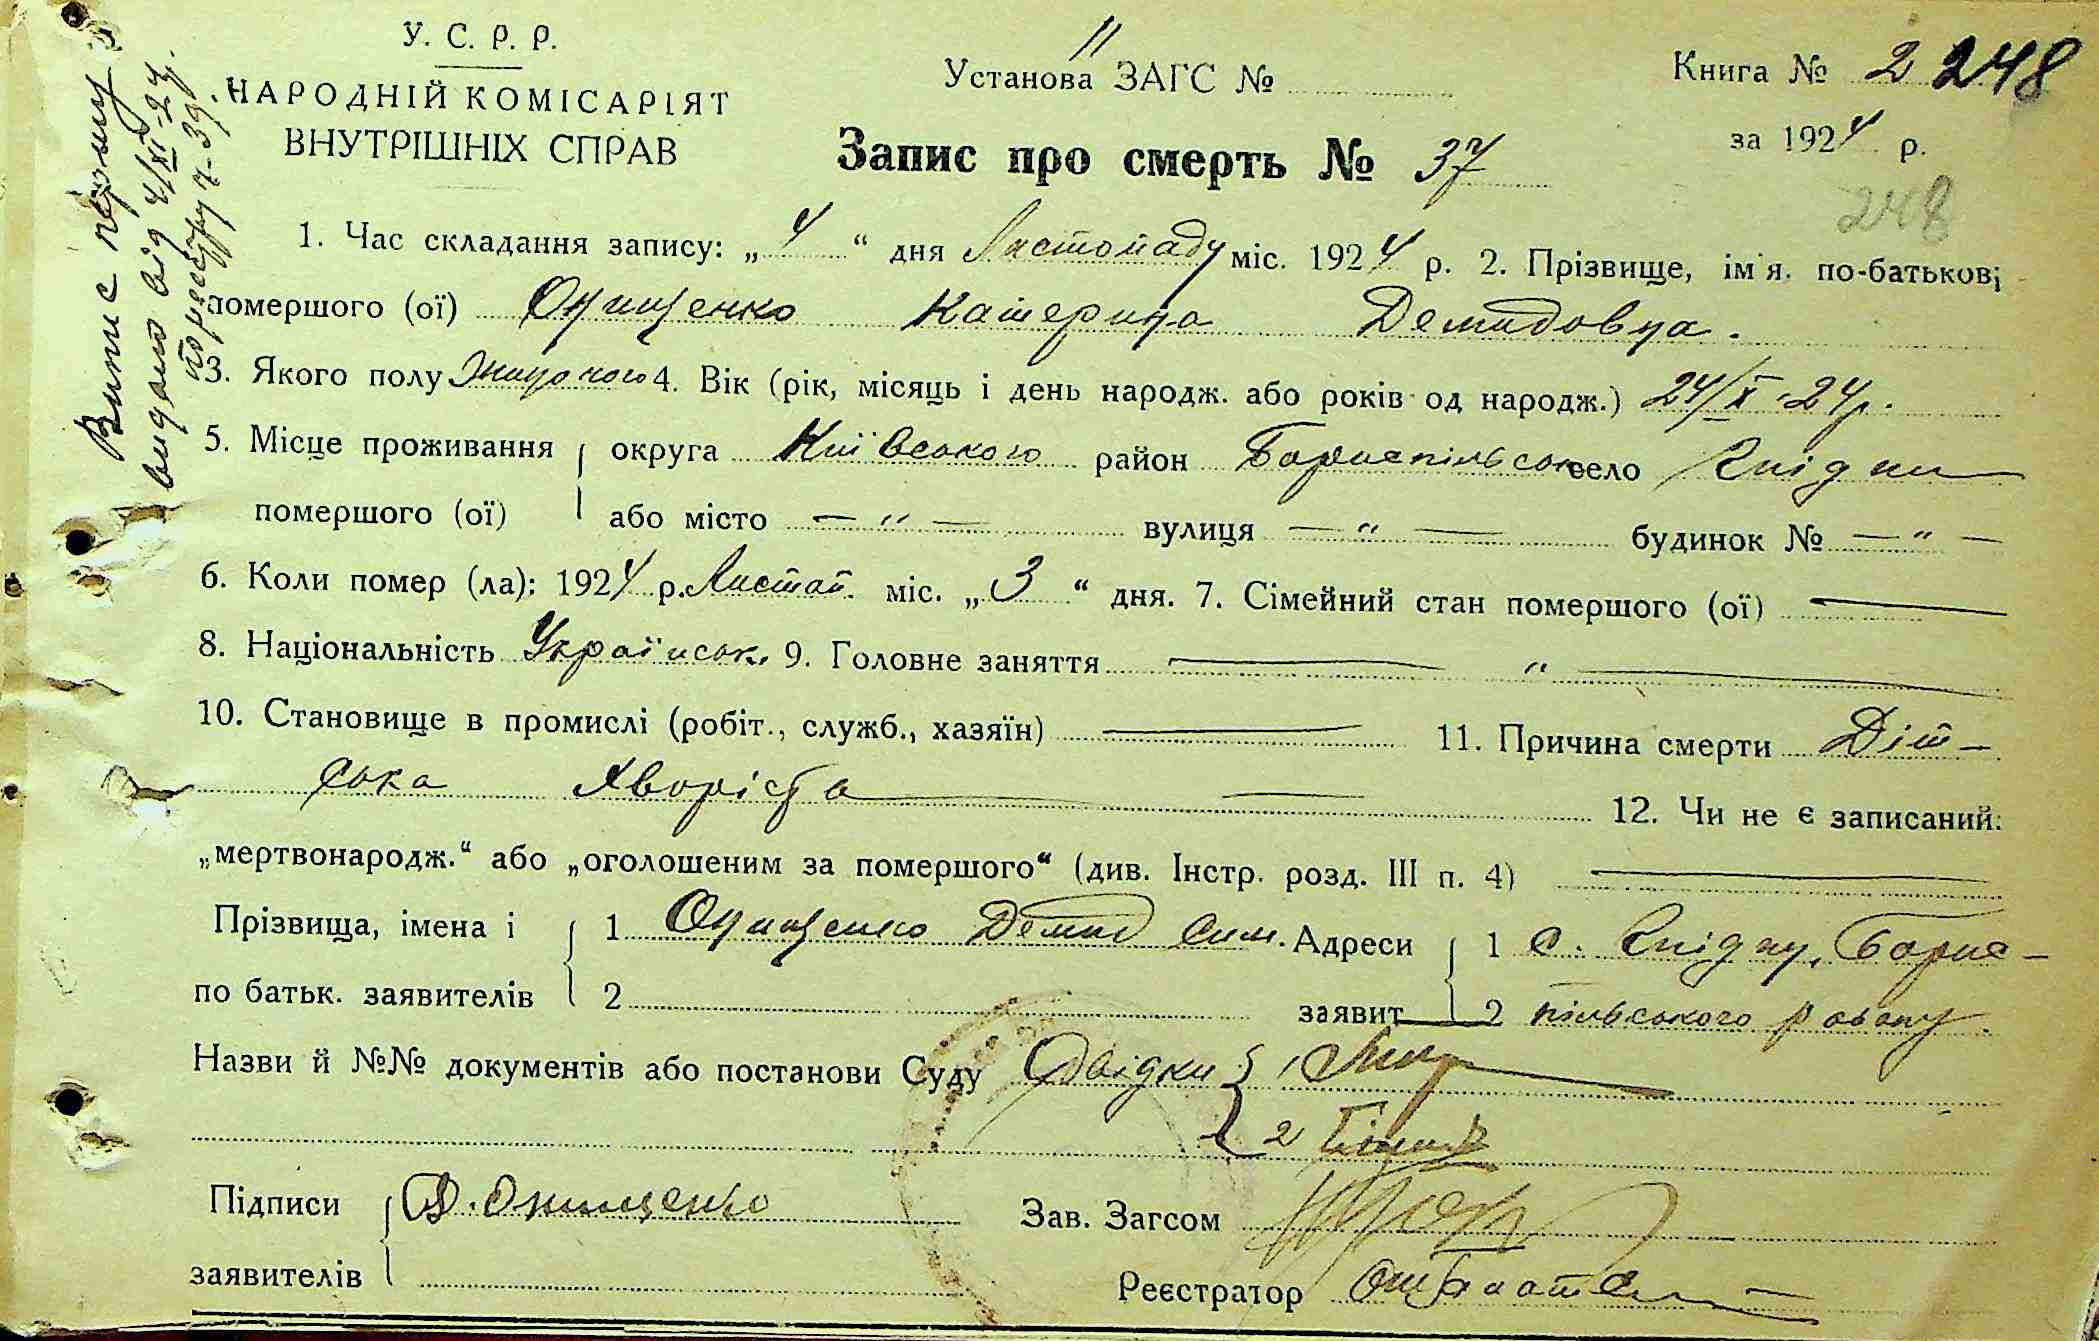 У. С. Р. Р.
НАРОДНІЙ КОМІСАРІЯТ
ВНУТРІШНІХ СПРАВ
Установа ЗАГС №
11
Книга № 2 248
за 1924 р.
248
Запис про смерть № 37
Випис першу
видано від 4/XI-24
по реєстру 7-39.
1. Час складання запису: „4“ дня Листопаду міс. 1924 р. 2. Прізвище, ім'я. по-батькові
помершого (ої) Онищенко Катерина Демидовна.
3. Якого полу жиночого 4. Вік (рік, місяць і день народж. або років од народж.) 24/X-24р.
5. Місце проживання округа Київського район Бориспільськ село Гнідин
помершого (ої) або місто — „ — вулиця — „ — будинок № — „ —
6. Коли помер (ла): 1924 р. Листоп. міс. „3“ дня. 7. Сімейний стан помершого (ої) —
8. Національність Українськ. 9. Головне заняття — „ —
10. Становище в промислі (робіт., служб., хазяїн) — 11. Причина смерти Діт-
ська хворіста — 12. Чи не є записаний:
„мертвонародж.“ або „оголошеним за помершого“ (див. Інстр. розд. III п. 4) —
Прізвища, імена і 1 Онищенко Демид Сим. Адреси 1 с. Гнідин, Борис-
по батьк. заявителів 2 заявит 2 пільського району
Назви й №№ документів або постанови Суду Свідки 1
2
Підписи Д. Онищенко Зав. Загсом
заявителів Реєстратор